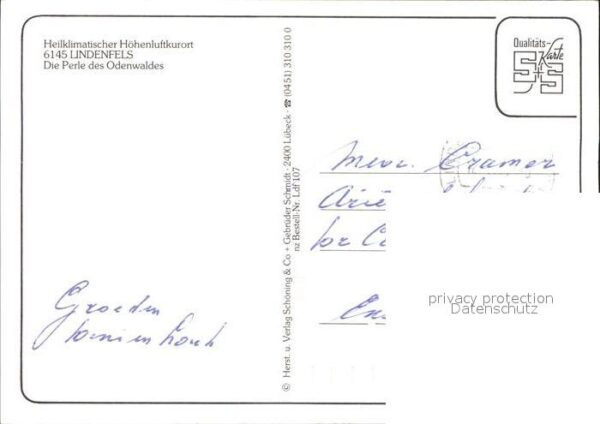 Heilklimatischer Höhenluftkurort
6145 LINDENFELS
Die Perle des Odenwaldes
Qualitäts-
Karte
S+S
© Herst. u. Verlag Schöning & Co + Gebrüder Schmidt · 2400 Lübeck · ☎ (0451) 310 310 0
nz Bestell-Nr. Ldf 107
Mevr. Cramer
Groeten
privacy protection
Datenschutz